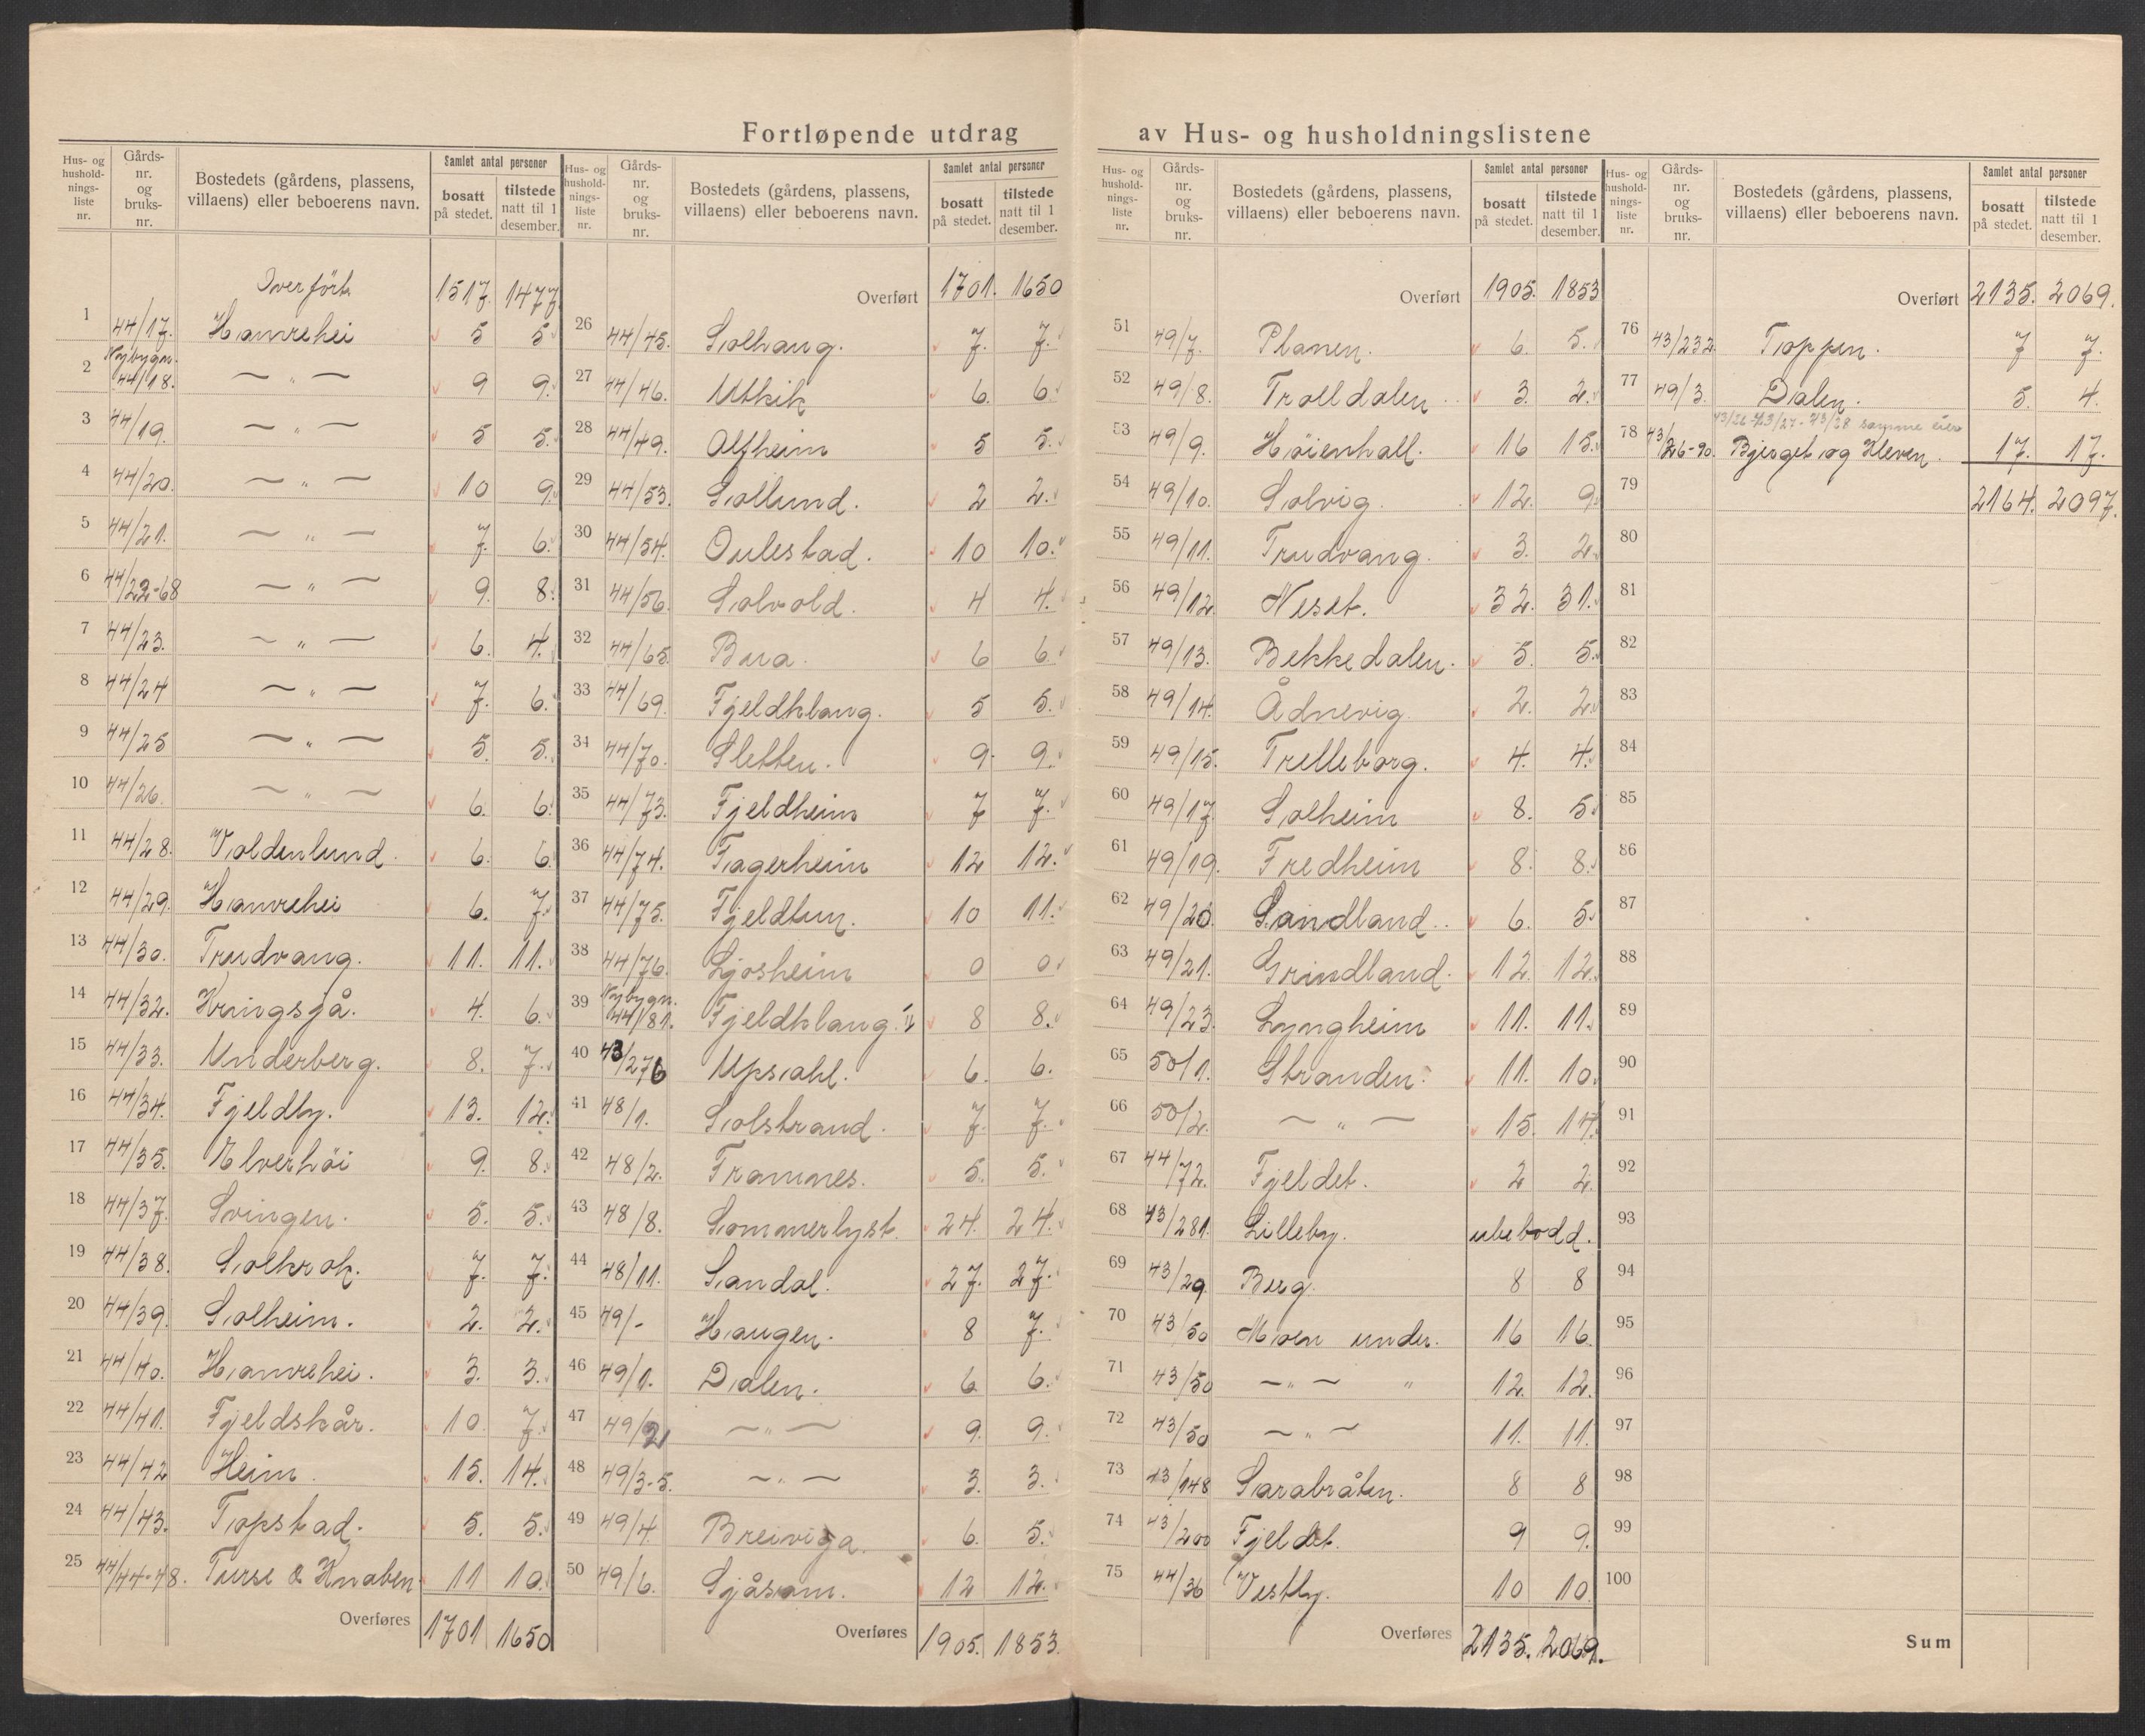 Fortløpende utdrag av Hus- og husholdningslistene
Hus- og husholdnings-liste nr. | Gårds-nr. og bruks-nr. | Bostedets (gårdens, plassens, villaens) eller beboerens navn. | Samlet antal personer | bosatt på stedet. | tilstede natt til 1 desember.
Overført 1517. 1477.
1 44/17. Hanrehei 5 5
2 Nybygn. 44/18. — „ — 9 9.
3 44/19. — „ — 5 5.
4 44/20. — „ — 10 9.
5 44/21. — „ — 7. 6.
6 44/22-68 — „ — 9. 8.
7 44/23. — „ — 6. 4.
8 44/24 — „ — 7. 6.
9 44/25 — „ — 5. 5.
10 44/26. — „ — 6. 6.
11 44/28. Voldenlund. 6. 6.
12 44/29. Hanrehei 6. 7.
13 44/30. Trudvang. 11. 11.
14 44/32. Kringsjå. 4. 6.
15 44/33. Underberg. 8. 7.
16 44/34. Fjeldby. 13. 12.
17 44/35. Elverhöi 9. 8.
18 44/37. Svingen. 5. 5.
19 44/38. Solkrok. 7. 7.
20 44/39. Solheim. 2. 2.
21 44/40. Hanrehei. 3. 3.
22 44/41. Fjeldskår. 10. 7.
23 44/42 Heim. 15. 14.
24 44/43. Topstad. 5. 5.
25 44/44-48. Turse & Knaben 11 10.
Overføres 1701 1650
Hus- og husholdnings-liste nr. | Gårds-nr. og bruks-nr. | Bostedets (gårdens, plassens, villaens) eller beboerens navn. | Samlet antal personer | bosatt på stedet. | tilstede natt til 1 desember.
Overført 1701. 1650
26 44/45. Solhaug. 7. 7.
27 44/46. Utkik 6. 6.
28 44/49. Alfheim 5 5.
29 44/53. Sollund. 2 2.
30 44/54. Oulestad. 10 10.
31 44/56. Solvold. 4 4.
32 44/65. Bora. 6 6
33 44/69. Fjeldklang. 5 5.
34 44/70. Sletten. 9. 9.
35 44/73. Fjeldheim 7 7.
36 44/74. Fagerheim 12 12.
37 44/75. Fjeldtun. 10 11.
38 44/76. Ljosheim 0 0
39 Nybygn. 44/81. Fjeldklang. II 8 8.
40 43/276 Upsahl. 6. 6.
41 48/1. Solstrand. 7. 7.
42 48/2. Framnes. 5. 5.
43 48/8. Sommerlyst. 24. 24.
44 48/11. Sandal. 27. 27.
45 49/- Haugen. 8 7.
46 49/1. Dalen. 6 6.
47 49/2 — „ — 9. 9.
48 49/3-5. — „ — 3. 3.
49 49/4. Breiviga. 6. 5.
50 49/6. Sjåsom. 12 12.
Overføres 1905. 1853.
Hus- og husholdnings-liste nr. | Gårds-nr. og bruks-nr. | Bostedets (gårdens, plassens, villaens) eller beboerens navn. | Samlet antal personer | bosatt på stedet. | tilstede natt til 1 desember.
Overført 1905. 1853
51 49/7. Planen. 6. 5.
52 49/8. Trolldalen 3. 2.
53 49/9. Høienhall. 16 15.
54 49/10. Solvig. 12. 9.
55 49/11. Trudvang. 3. 2.
56 49/12. Neset. 32. 31.
57 49/13. Bekkedalen. 5. 5.
58 49/14. Ådnevig. 2. 2.
59 49/15. Trelleborg. 4. 4.
60 49/17. Solheim 8. 5.
61 49/19. Fredheim 8. 8.
62 49/20. Sandland. 6. 5.
63 49/21. Grindland. 12. 12.
64 49/23. Lyngheim 11. 11.
65 50/1. Stranden. 11. 10.
66 50/2. — „ — 15. 14.
67 44/72. Fjeldet. 2 2.
68 43/281. Lilleby. ubebodd.
69 43/29 Berg. 8 8
70 43/50 Moen under. 16 16.
71 43/50 — „ — „ 12. 12.
72 43/50 — „ — 11. 11.
73 43/148 Sarabråten. 8 8
74 43/200 Fjeldet. 9 9.
75 44/36 Vestby. 10 10
Overføres 2135. 2069.
Hus- og husholdnings-liste nr. | Gårds-nr. og bruks-nr. | Bostedets (gårdens, plassens, villaens) eller beboerens navn. | Samlet antal personer | bosatt på stedet. | tilstede natt til 1 desember.
Overført 2135. 2069.
76 43/232 Toppen. 7 7.
77 49/3. Dalen. 5. 4.
43/26-43/27-43/28 samme eier
78 43/26-90. Bjerget og Kleven. 17. 17.
79 2164. 2097.
80
81
82
83
84
85
86
87
88
89
90
91
92
93
94
95
96
97
98
99
100
Sum